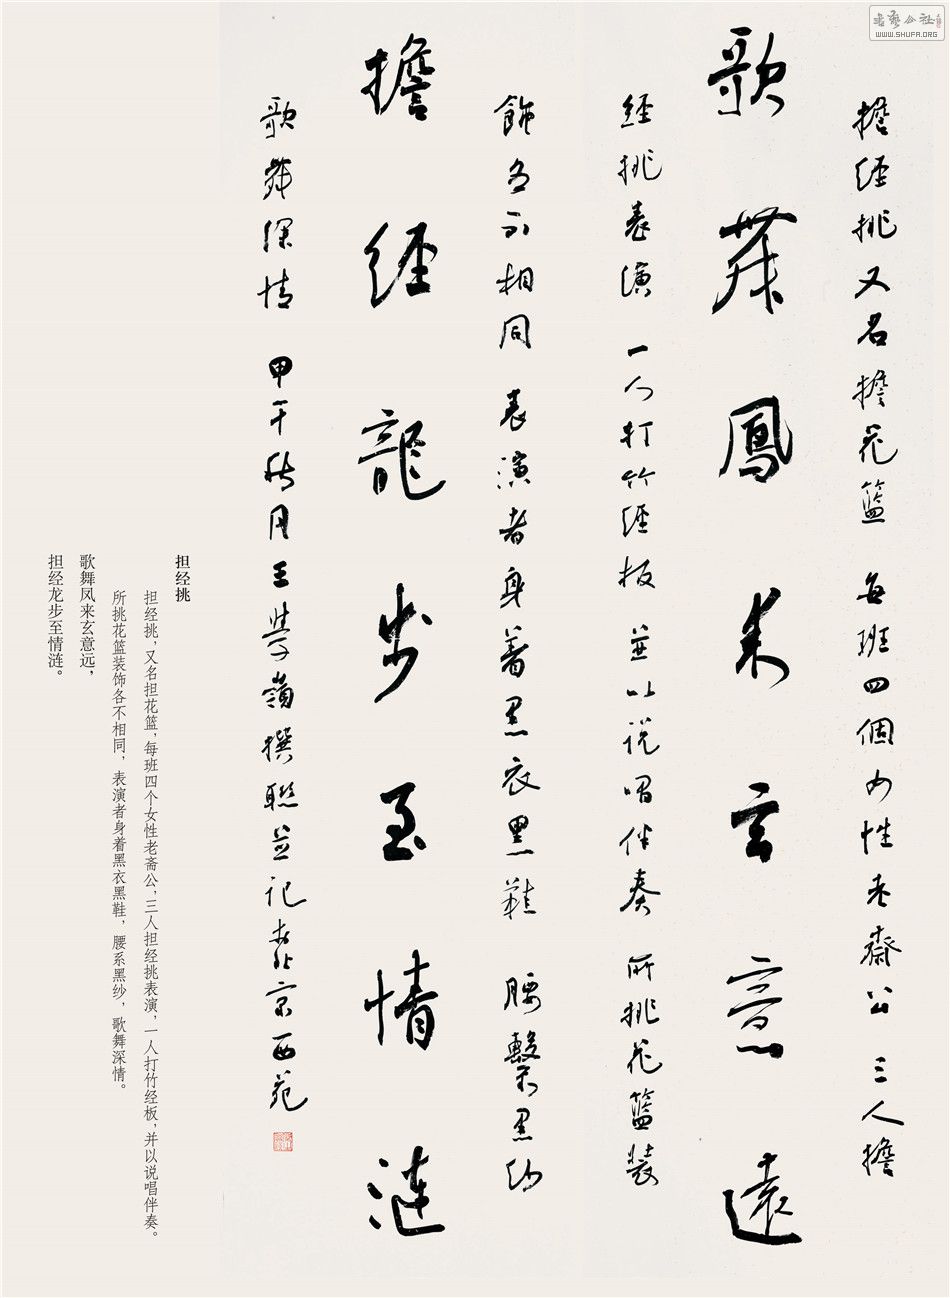 擔經挑又名擔花籃 每班四個女性老齋公 三人擔
歌舞鳳来玄意遠
經挑表演 一人打竹經板 並以说唱伴奏 所挑花籃裝
飾各不相同 表演者身着黑衣黑鞋 腰繫黑纱
擔經龍步至情漣
歌舞深情 甲午秋月王学嶺撰聯並记於北京西苑
担经挑
担经挑，又名担花篮，每班四个女性老斋公，三人担经挑表演，一人打竹经板，并以说唱伴奏。
所挑花篮装饰各不相同，表演者身着黑衣黑鞋，腰系黑纱，歌舞深情。
歌舞凤来玄意远，
担经龙步至情涟。
书艺公社
WWW.SHUFA.ORG